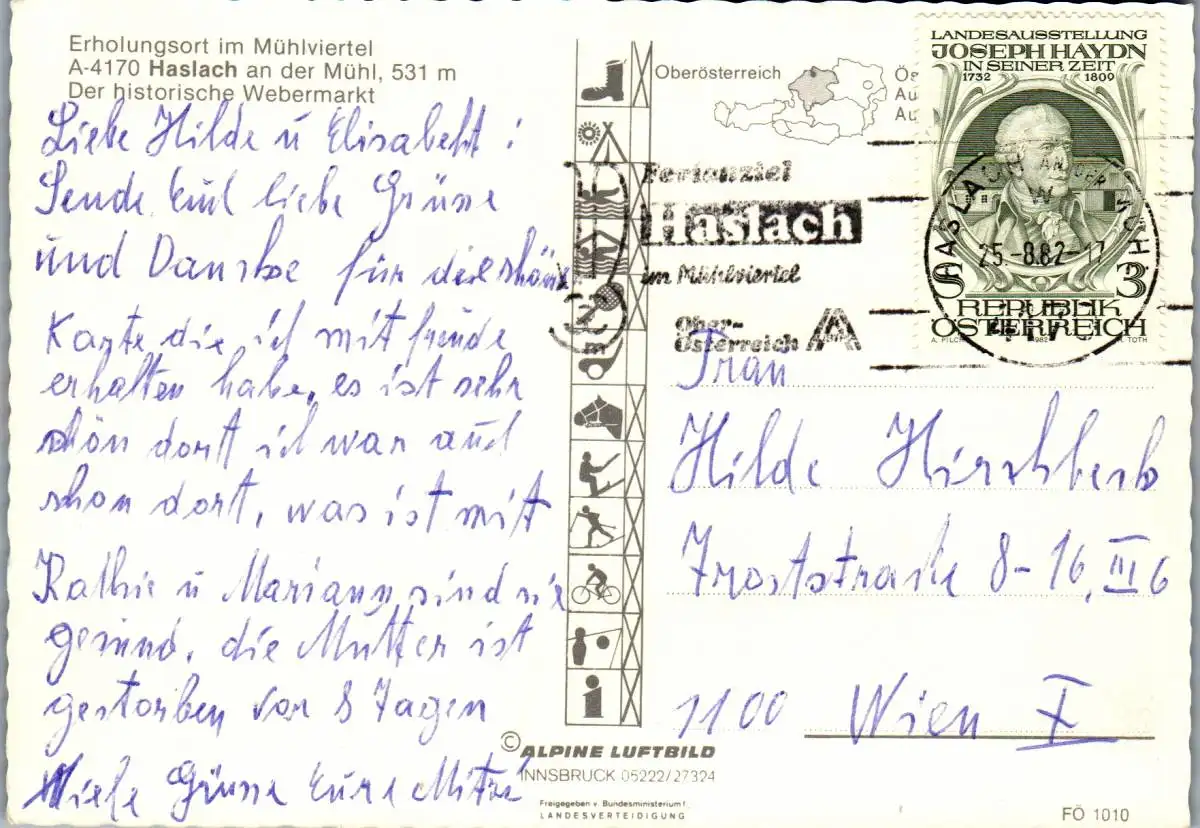 Erholungsort im Mühlviertel
A-4170 Haslach an der Mühl, 531 m
Der historische Webermarkt
Liebe Hilde u Elisabeht:
Sende Euch liebe Grüsse
und Danske für die shöne
Karte die ich mit freude
erhalten habe, es ist sehr
schön dort ich war auch
shon dort, was ist mit
Kathie u Mariann, sind sie
gesund, die Mutter ist
gestorben vor 8 Tagen
Viele Grüsse Eure Mitzi
Oberösterreich
Ös
Au
Au
Ferienziel
Haslach
im Mühlviertel
Ober-
Österreich
LANDESAUSSTELLUNG
JOSEPH HAYDN
IN SEINER ZEIT
1732 1809
HASLACH AN DER MÜHL
25.-8.82-17
S 3
REPUBLIK
ÖSTERREICH
A. PILCH 1982 TOTH
Frau
Hilde Hirschbeck
Troststrasse 8-16, III 6
1100 Wien X
© ALPINE LUFTBILD
INNSBRUCK 05222/27324
Freigegeben v. Bundesministerium f.
LANDESVERTEIDIGUNG
FÖ 1010